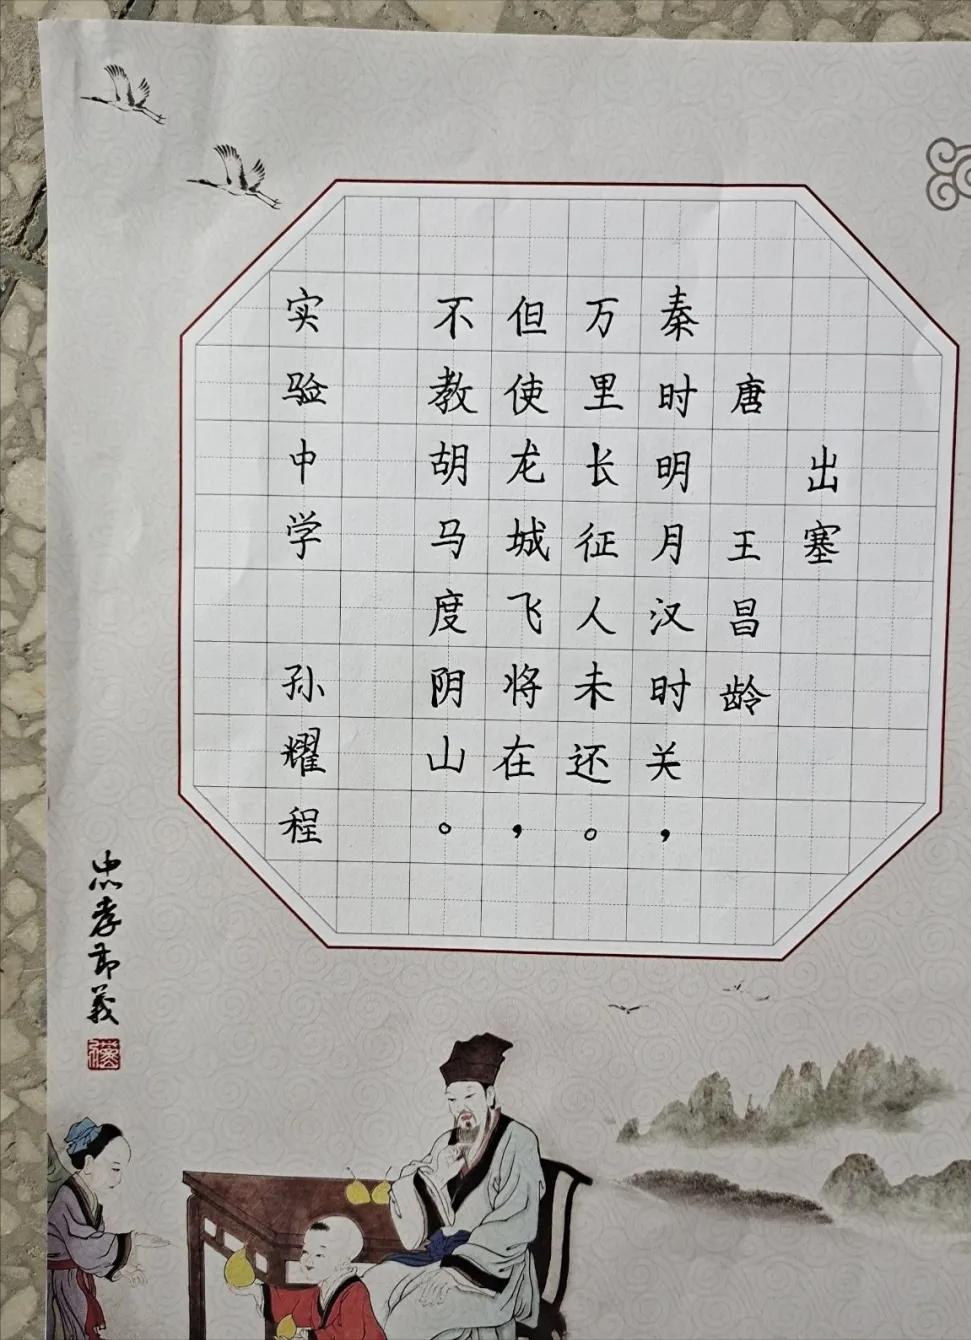 出塞
唐 王昌龄
秦时明月汉时关，
万里长征人未还。
但使龙城飞将在，
不教胡马度阴山。
实验中学 孙耀程
忠孝节義